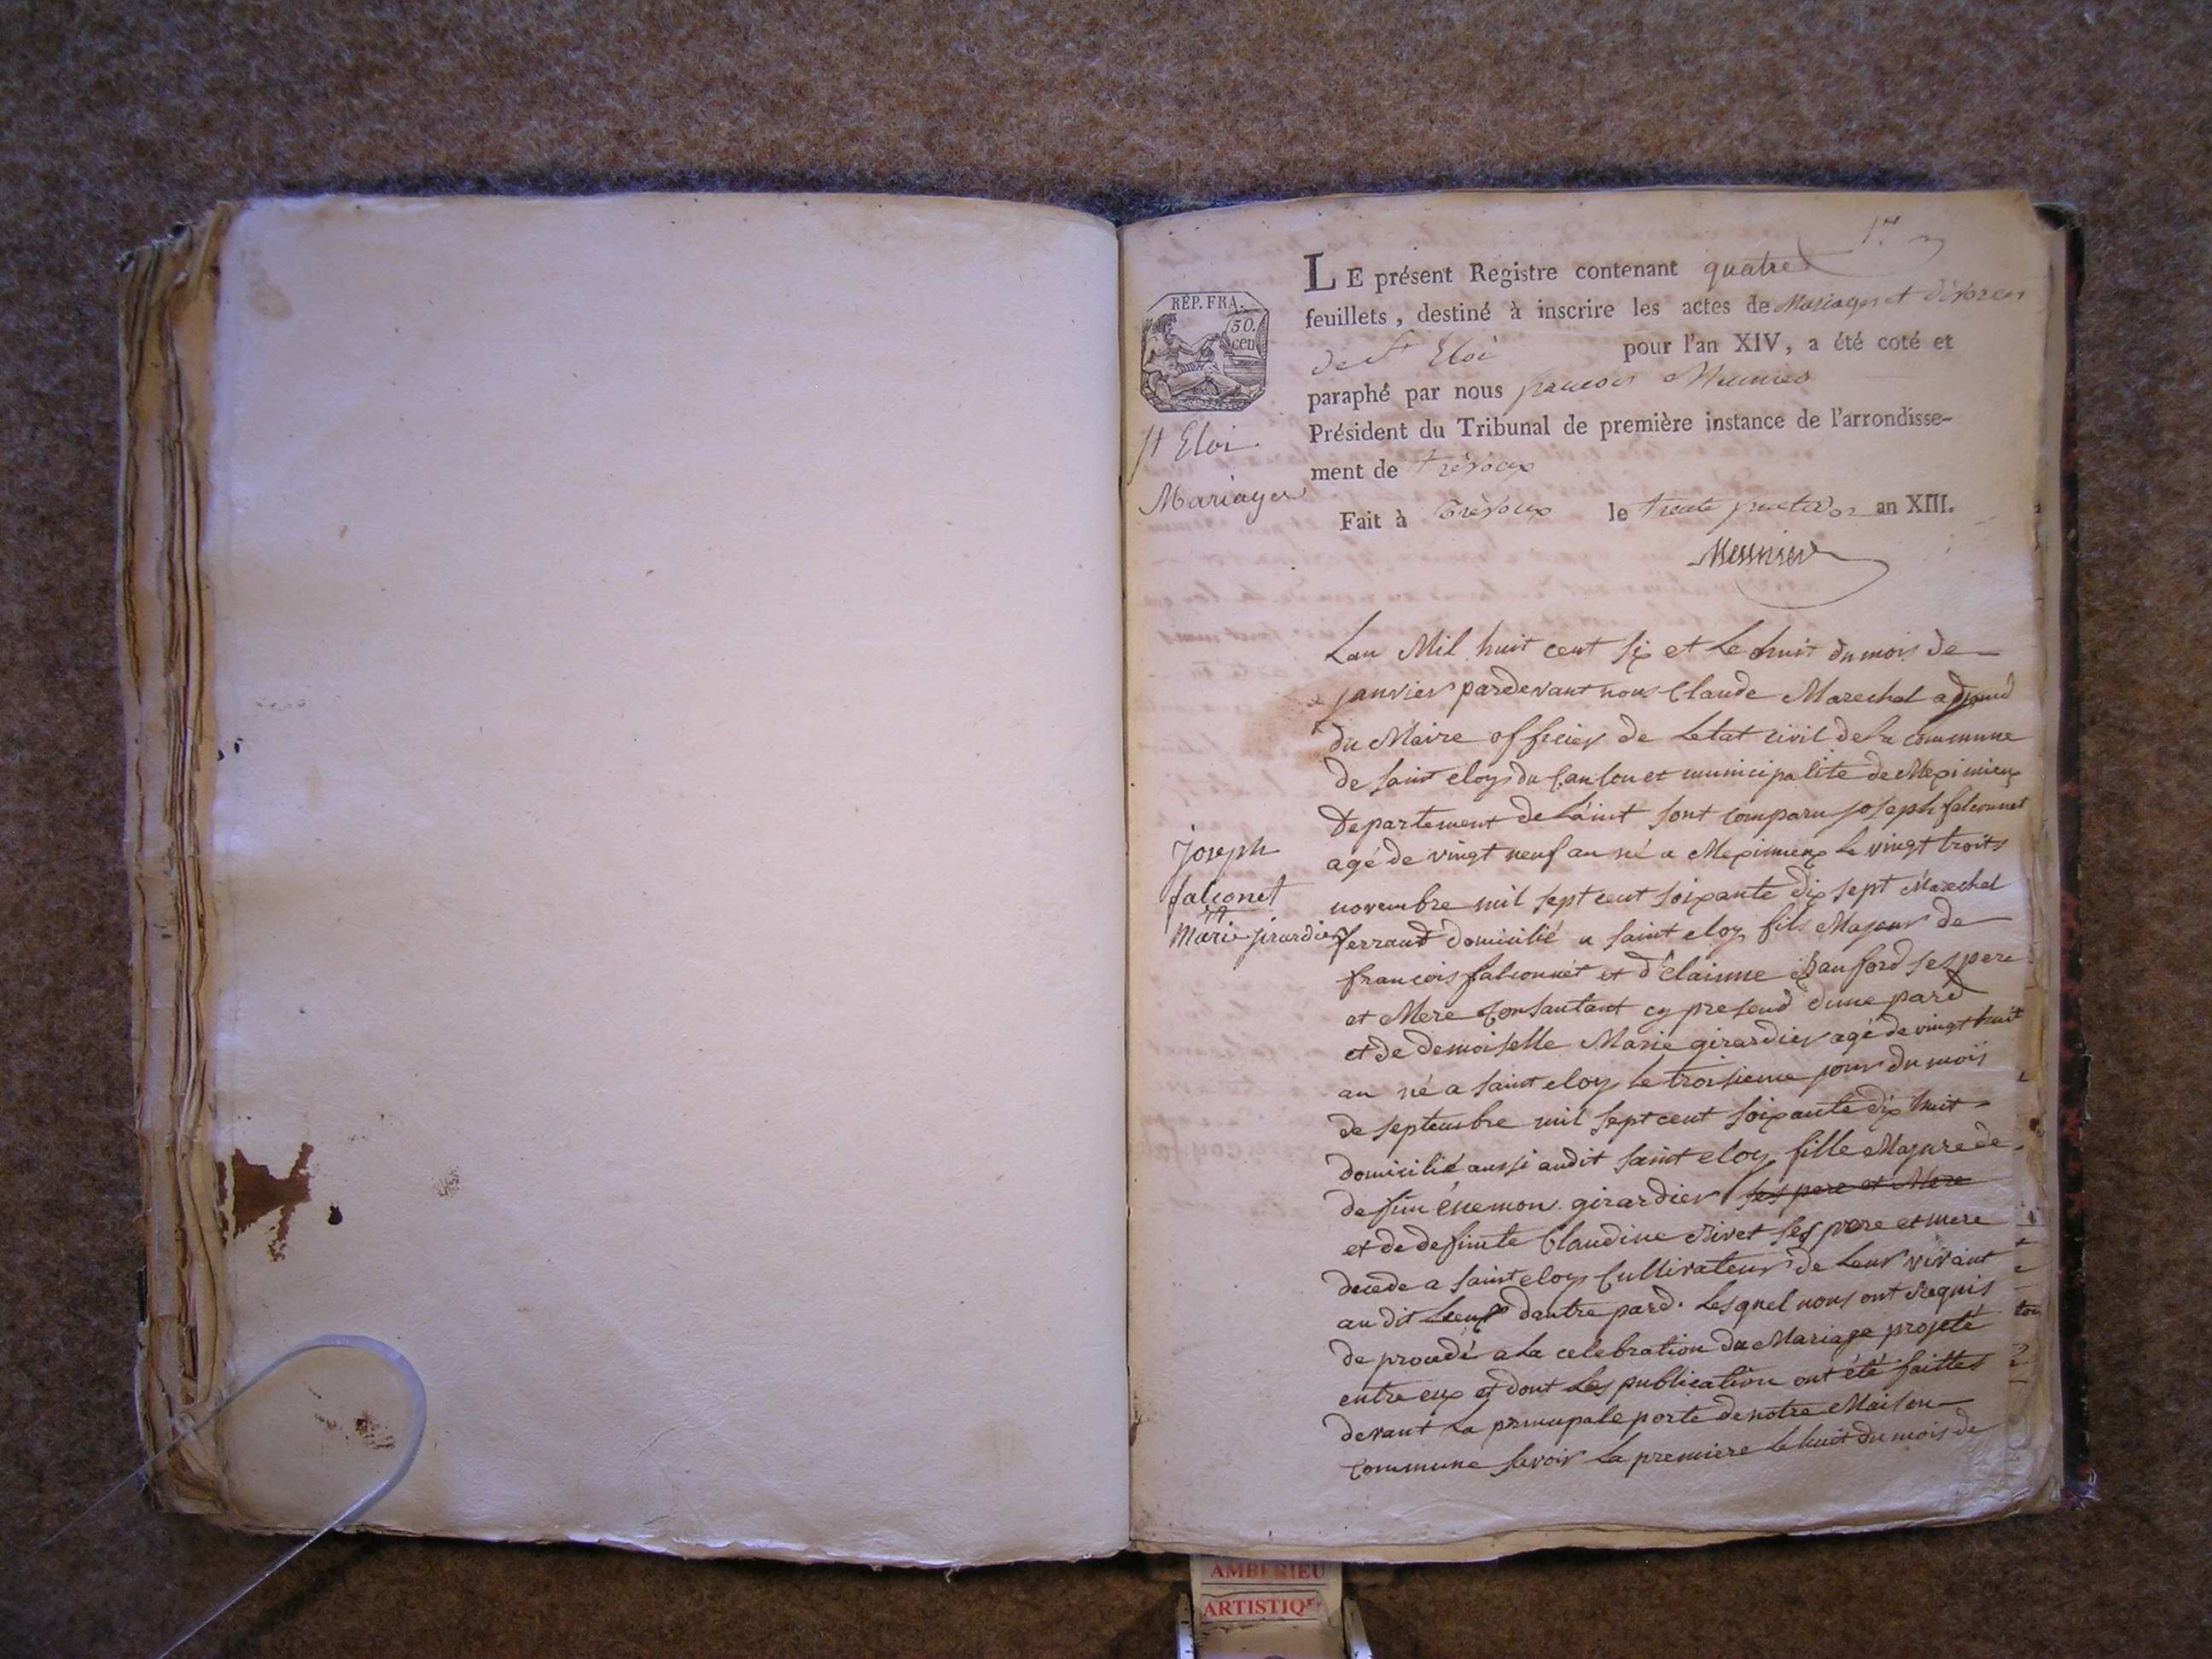 1er
LE présent Registre contenant quatre
feuillets, destiné à inscrire les actes de Mariages et divorces
de St Eloi pour l'an XIV, a été coté et
paraphé par nous françois Meunier
Président du Tribunal de première instance de l'arrondisse-
ment de trévoux
Fait à trévoux le trente fructidor an XIII.
Meunier
RÉP. FRA.
50.
cen
St Eloi
Mariages
Joseph
falconet
Marie girardier
Lan Mil huit cent six et Le huit du mois de
janvier pardevant nous Claude Marechal adjoind
du Maire officier de Letat civil de la commune
de saint eloy du Canton et municipalite de Meximieux
Departement de Laint sont comparu joseph falconnet
agé de vingt neuf an né a Meximieux le vingt troits
novembre mil sept cent soixante dix sept Marechal
ferrant domicilié a saint eloy fils Majeur de
françois falconnét et d'Claimne ses pere
et Mere Consantant cy presend dune pard
et de demoiselle Marie girardier agé de vingt huit
an né a saint eloy le troisieme jour du mois
de septembre mil sept cent soixante dix huit
domicilié aussi audit saint eloy fille Majure de
defun énemon girardier ses pere et Mere
et de defunte Claudine Rivet ses pere et mere
decede a saint eloy Cultivateur de Leur vivant
au dit Lieux dautre pard. Lesquel nous ont Requis
de procedé a La celebration du Mariage projeté
entre eux et dont Les publication ont été faittes
devant La principale porte de notre Maison
Commune savoir La premiere Le huit du mois de
AMBERIEU
ARTISTIQUE